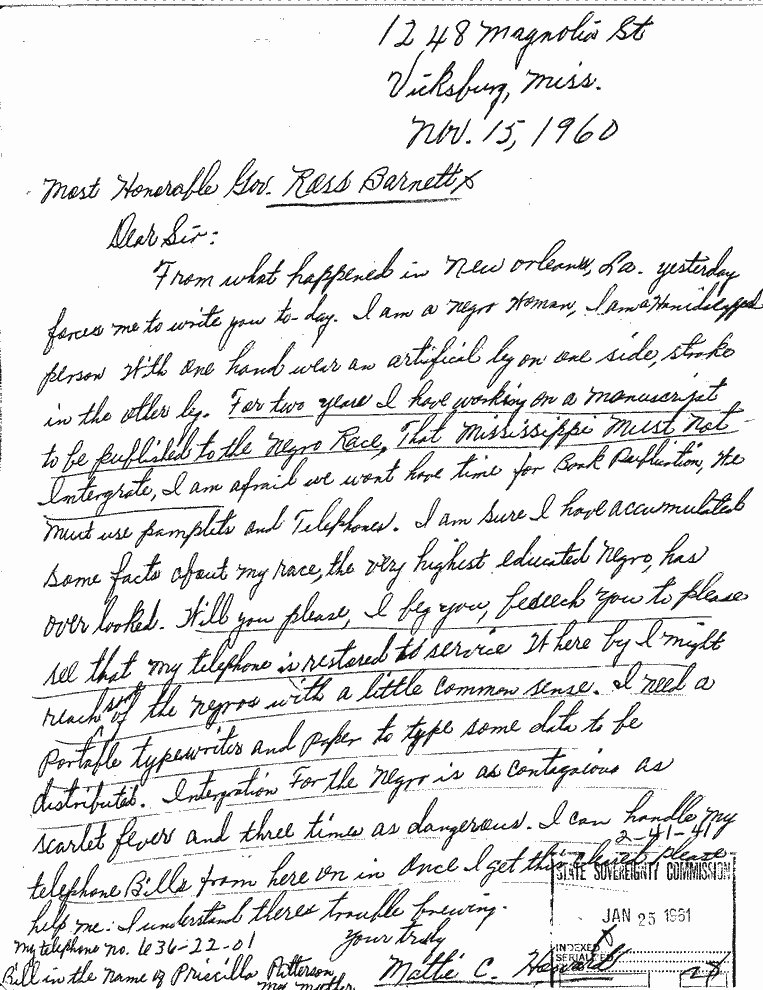 1248 Magnolia St
Vicksburg, Miss.
Nov. 15, 1960
Most Honorable Gov. Ross Barnett
Dear Sir:
From what happened in New Orleans, La. yesterday
forces me to write you to-day. I am a Negro Woman, I am a Handicapped
person With one hand wear an artifical leg on one side, stroke
in the other leg. For two years I have working on a manuscript
to be published to the Negro Race, That Mississippi Must Not
Intergrate, I am afraid we wont have time for Book Publication, We
must use pamplets and Telephones. I am sure I have accumulated
some facts about my race, the very highest educated Negro, has
over looked. Will you please, I beg you, beseech you to please
see that my telephone is restored to service Where by I might
reach some of the negroes with a little common sense. I need a
Portable typewriter and paper to type some data to be
distributed. Intergration For the Negro is as contagious as
scarlet fever and three times as dangerous. I can handle my
2-41-41
telephone Bills from here on in Once I get this cleared please
STATE SOVEREIGNTY COMMISSION
help me. I understand theres trouble brewing.
JAN 25 1961
My telephone no. 636-22-01
Your truly
INDEXED
SERIALIZED
Bill in the name of Priscilla Patterson
My Mother
Mattie C.